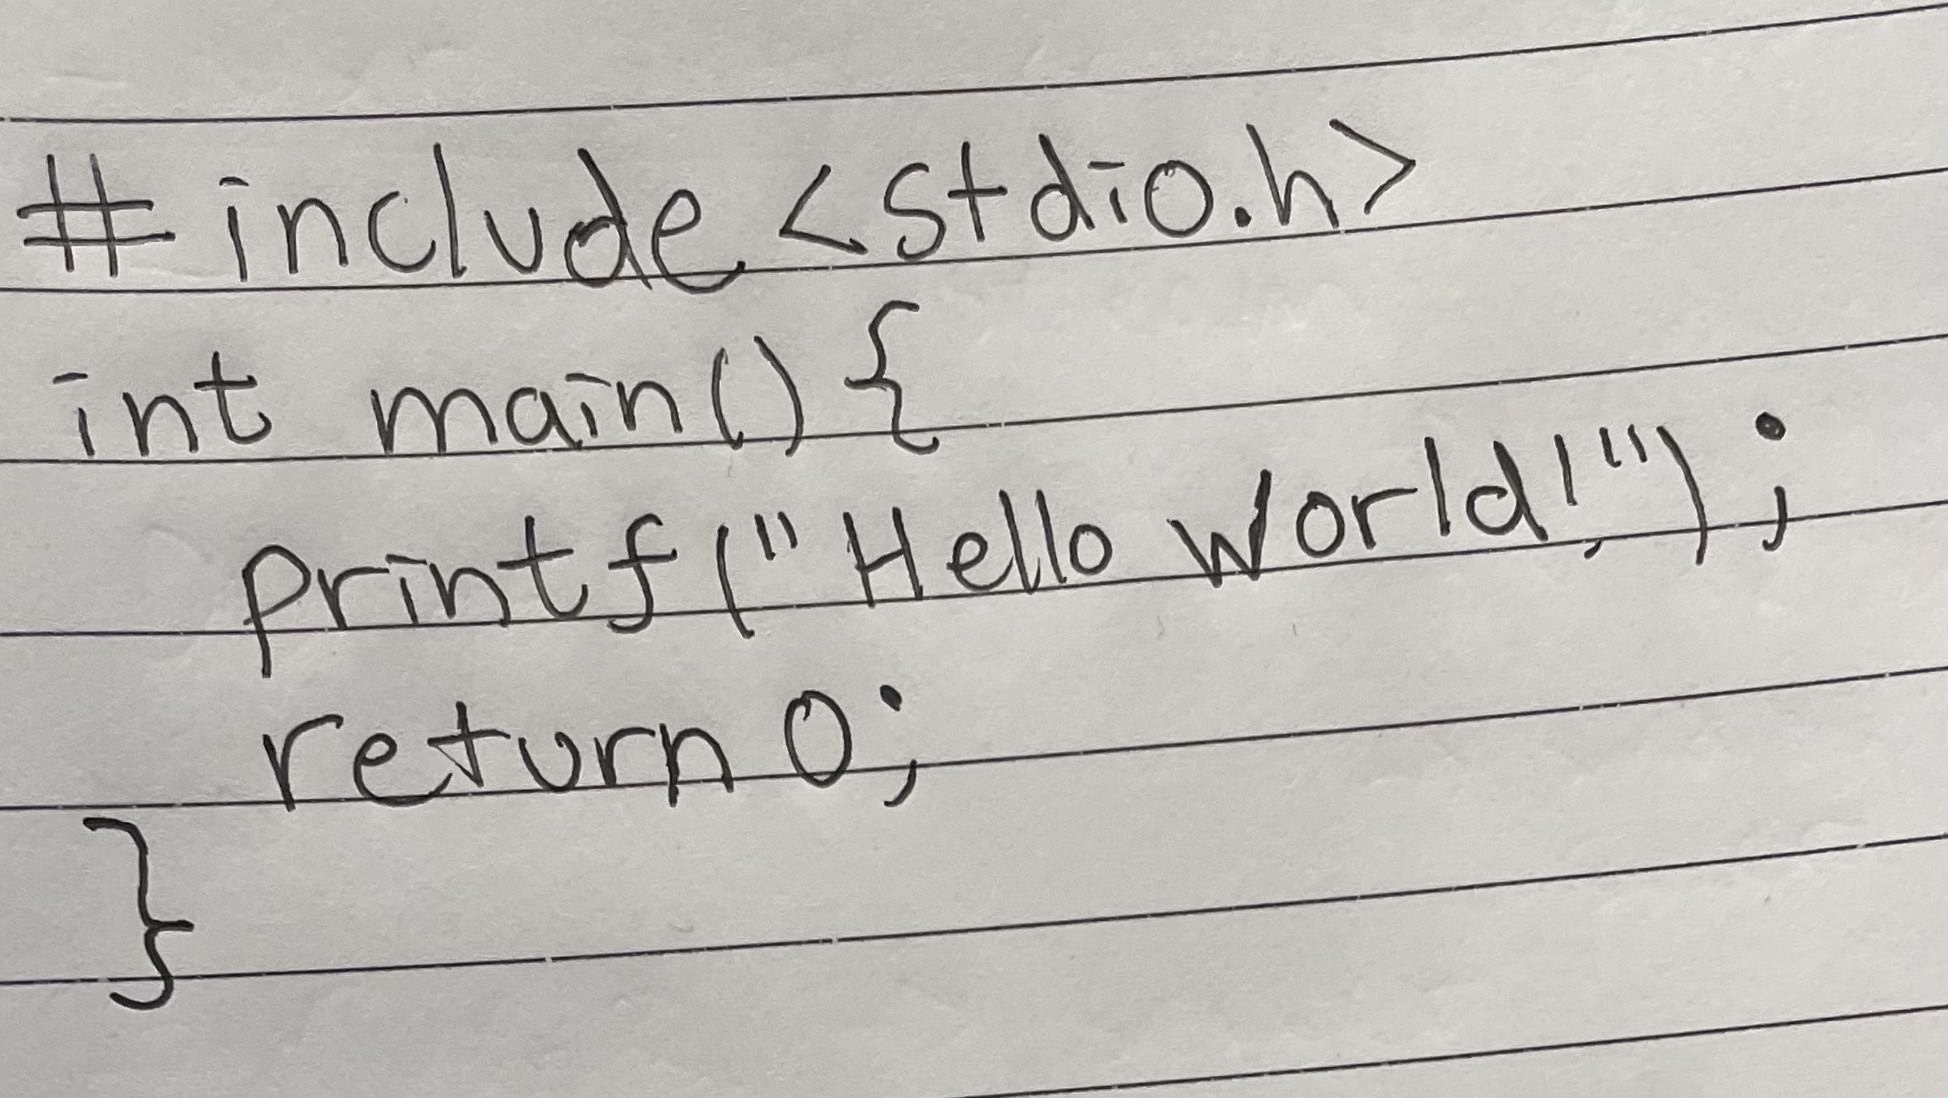 #include <stdio.h>
int main() {
printf("Hello World!");
return 0;
}